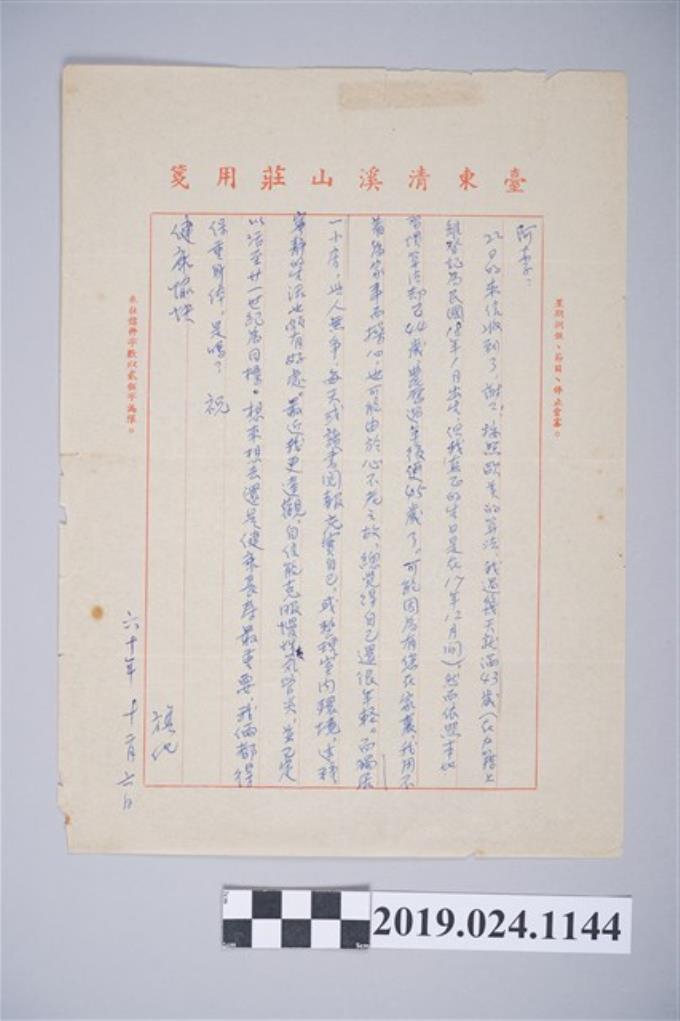 臺東清溪山莊用箋
星期例假、節日、停止會客。
阿李：
22日的來信收到了，謝謝，按照歐美的算法，我過幾天就滿43歲（在戶籍上
雖登記為民國18年1月出生，但我真正的生日是在17年12月間），然而依照本地
習慣算法卻已44歲，農曆過年後便45歲了。可能因為有您在家裏，我用不
着為家事而擔心，也可能由於心不老之故，總覺得自己還很年輕。而獨居
一小房，與人無爭，每天或讀書閱報充實自己，或整理室內環境，這種
寧靜的生活也頗有好處。最近我更達觀，自信能克服慢性氣管炎，並已定
以活至廿一世紀為目標。想來想去還是健康長壽最重要，我倆都得
保重身体，是嗎？　祝
健康愉快
旗化
六十年十二月六日
來往信件字數以貳佰字為限。
2019.024.1144
5cm
5cm